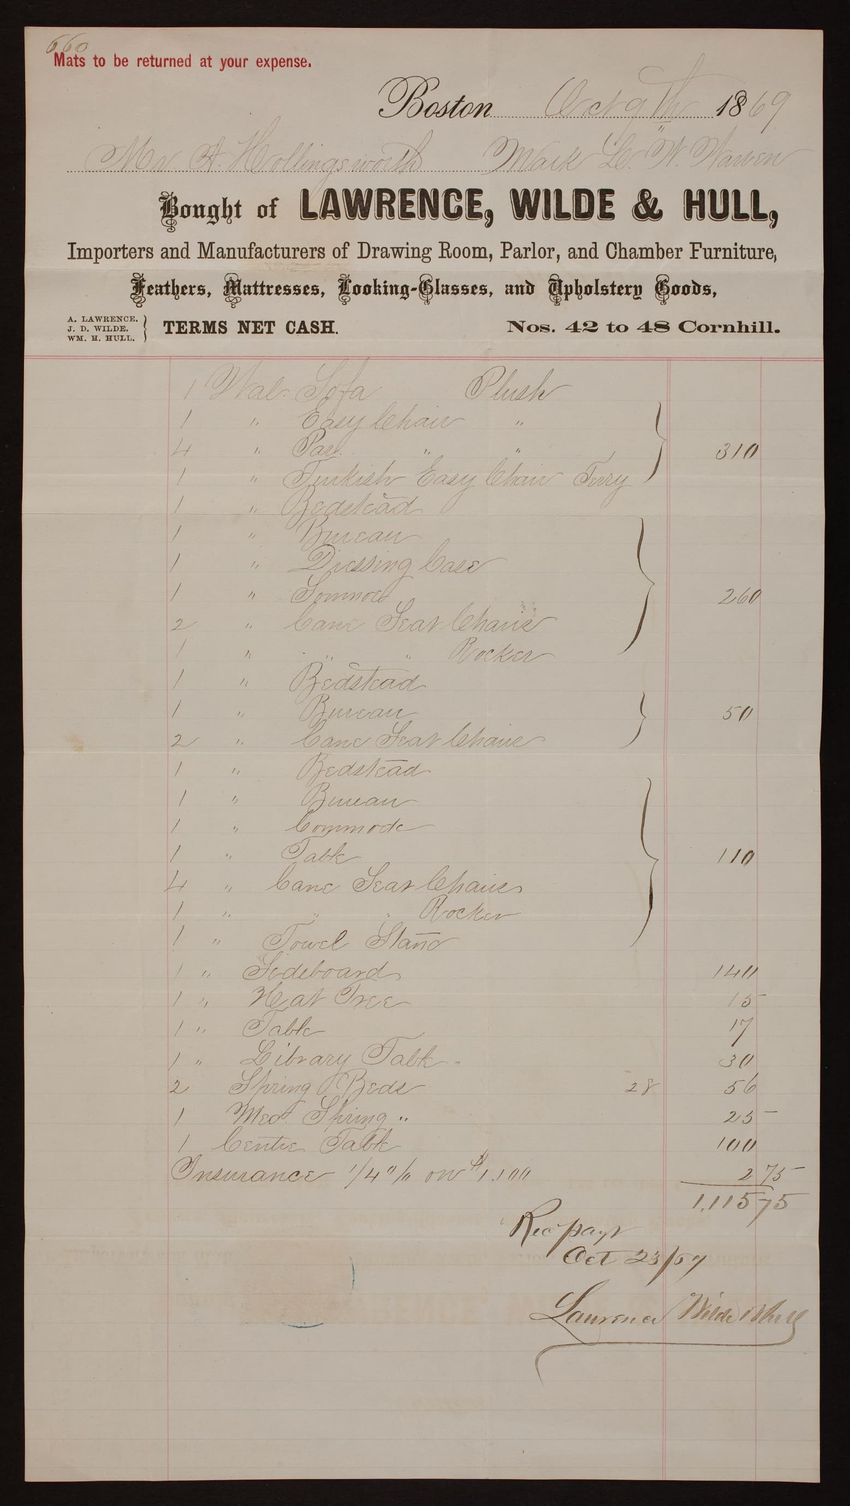 660
Mats to be returned at your expense.
Boston Oct 9th 1869
Mr A. Hollingsworth Mark L. W. Warren
Bought of LAWRENCE, WILDE & HULL,
Importers and Manufacturers of Drawing Room, Parlor, and Chamber Furniture,
Feathers, Mattresses, Looking-Glasses, and Upholstery Goods,
A. LAWRENCE.
J. D. WILDE.
WM. H. HULL.
TERMS NET CASH. Nos. 42 to 48 Cornhill.
1 Wal. Sofa Plush
1 " Easy Chair "
4 " Par. " " 310
1 " Turkish Easy Chair Terry
1 " Bedstead
1 " Bureau
1 " Dressing Case
1 " 260
2 " Cane Seat Chairs
1 " " " Rocker
1 " Bedstead
1 " Bureau 50
2 " Cane Seat Chairs
1 " Bedstead
1 " Bureau
1 " Commode
1 " Table 110
4 " Cane Seat Chairs
1 " " " Rocker
1 " Towel Stand
1 " Sideboard 140
1 " Hat Tree 15
1 " Table 17
1 " Library Table 30
2 Spring Beds 28 56
1 Med. Spring " 25 -
1 Centre Table 100
Insurance 1/4 % on $1,100 2 75
1,115 75
Rec payt
Oct 23/69
Lawrence Wilde & Hull